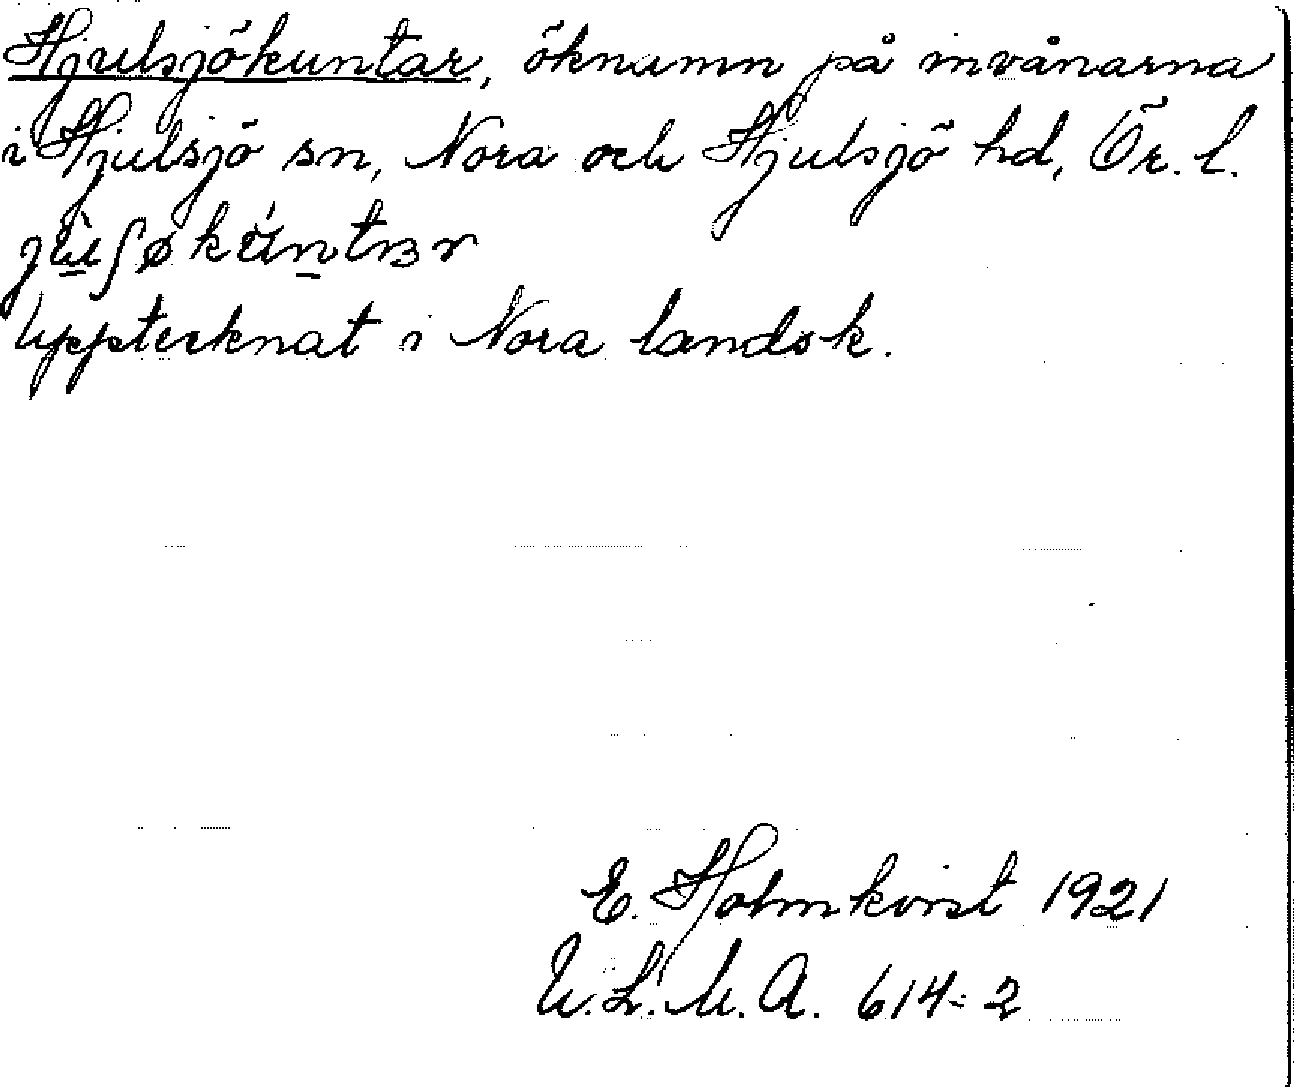 Hjulsjökuntar, öknamn på invånarna
i Hjulsjö sn, Nora och Hjulsjö hd, Ör. l.
Upptecknat i Nora landsk.
E. Holmkvist 1921
U.L.M.A. 614:2